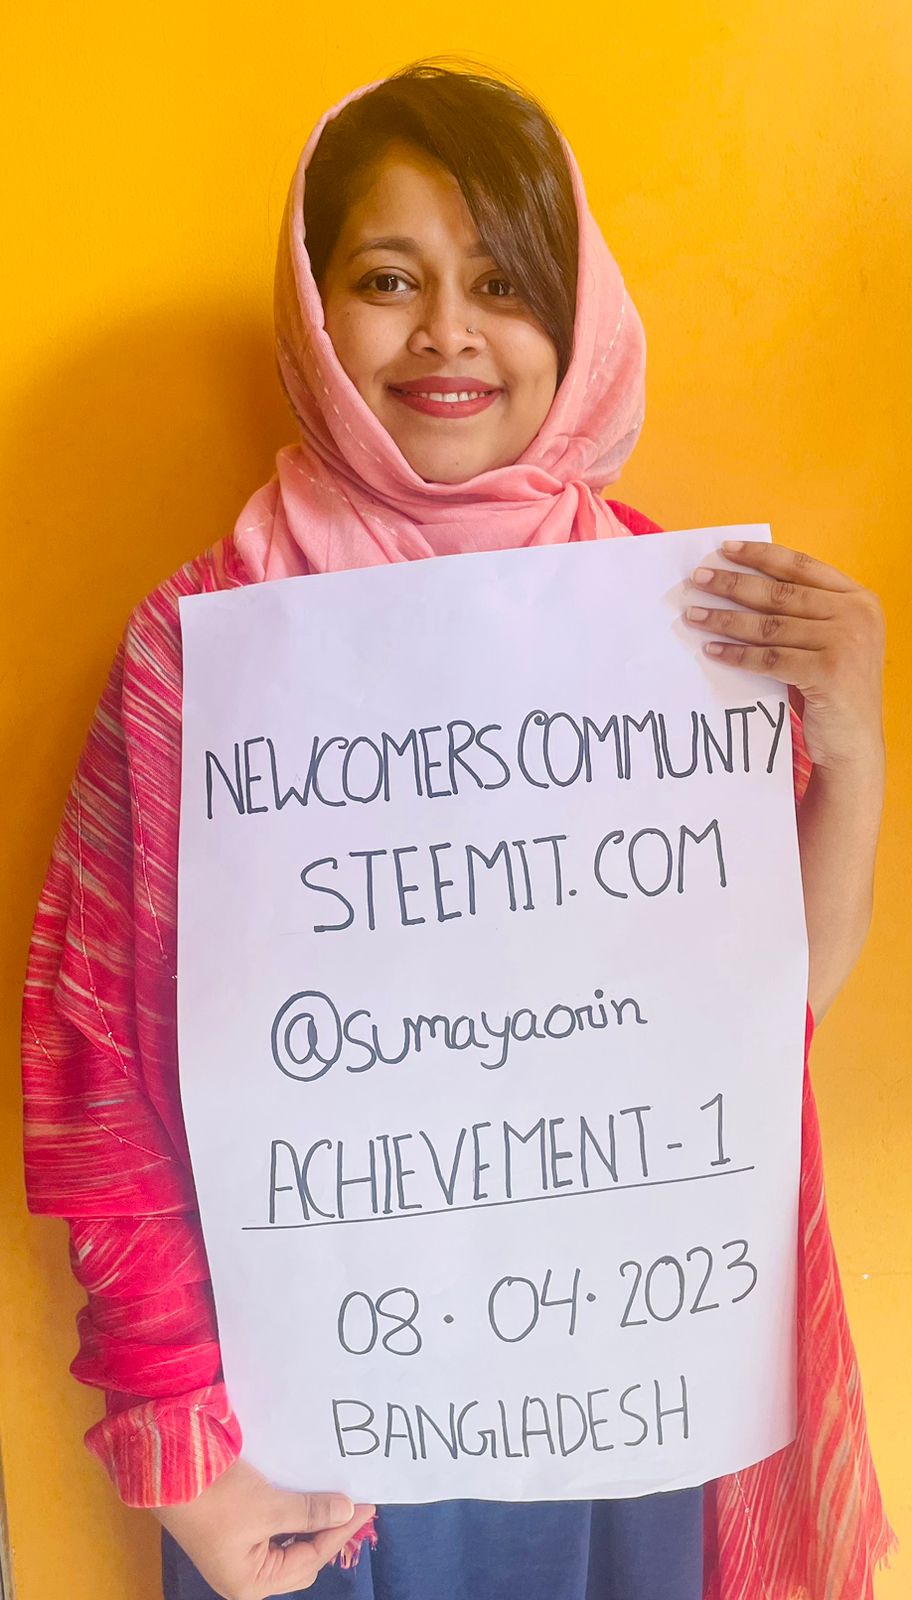 NEWCOMERS COMMUNTY
STEEMIT.COM
@sumayaorin
ACHIEVEMENT-1
08.04.2023
BANGLADESH